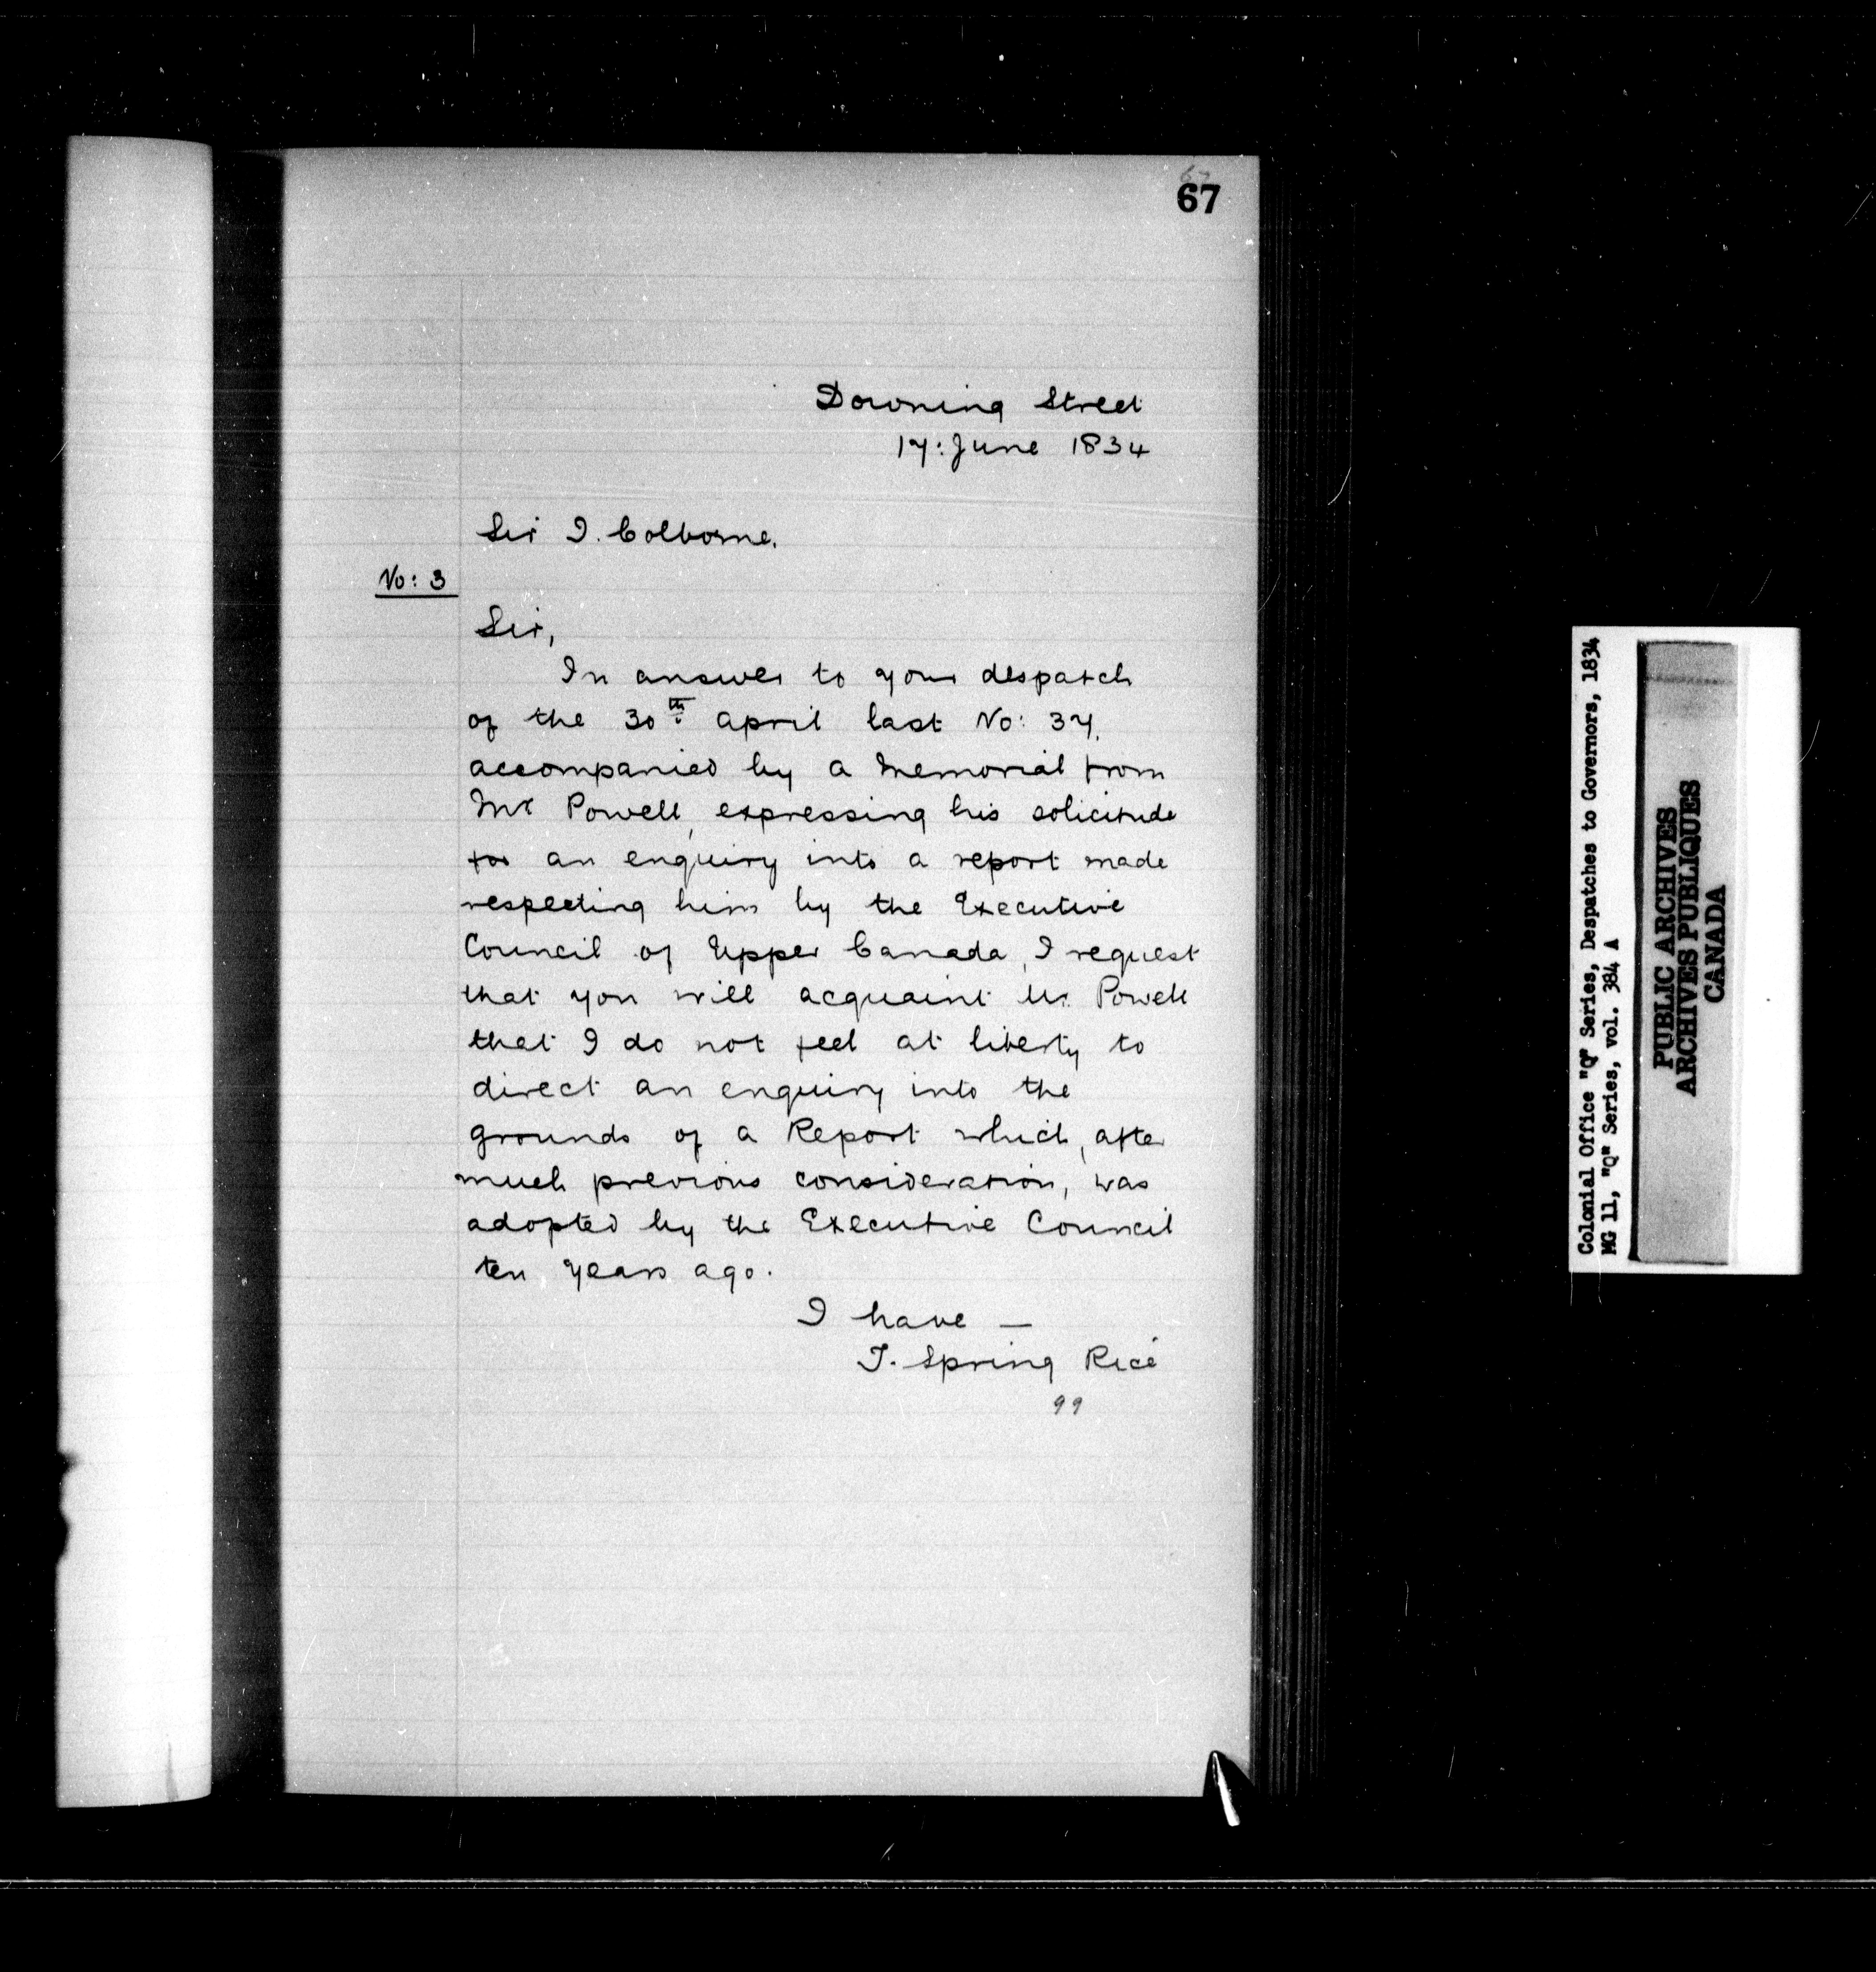 67
67
Downing Street
17: June 1834
Sir J. Colborne.
No: 3
Sir,
In answer to your despatch
of the 30th April last No: 37.
accompanied by a Memorial from
Mr Powell, expressing his solicitude
for an enquiry into a report made
respecting him by the Executive
Council of Upper Canada, I request
that you will acquaint Mr. Powell
that I do not feel at liberty to
direct an enquiry into the
grounds of a Report which, after
much previous consideration, was
adopted by the Executive Council
ten years ago.
I have —
T. Spring Rice
99
Colonial Office "Q" Series, Despatches to Governors, 1834
MG 11, "Q" Series, vol. 384 A
PUBLIC ARCHIVES
ARCHIVES PUBLIQUES
CANADA